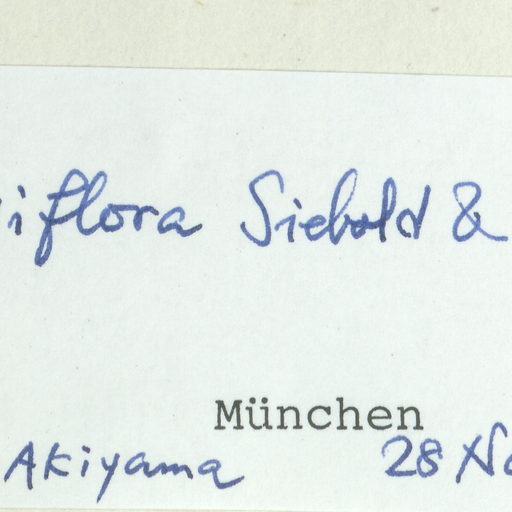 iflora Siebold &
München
Akiyama 28 No